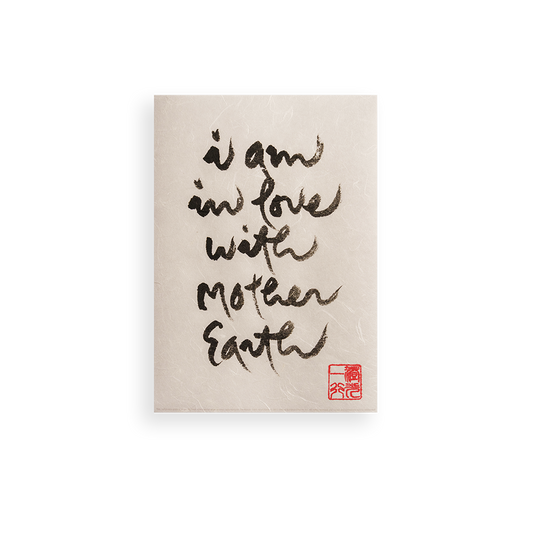 i am
in love
with
Mother
Earth